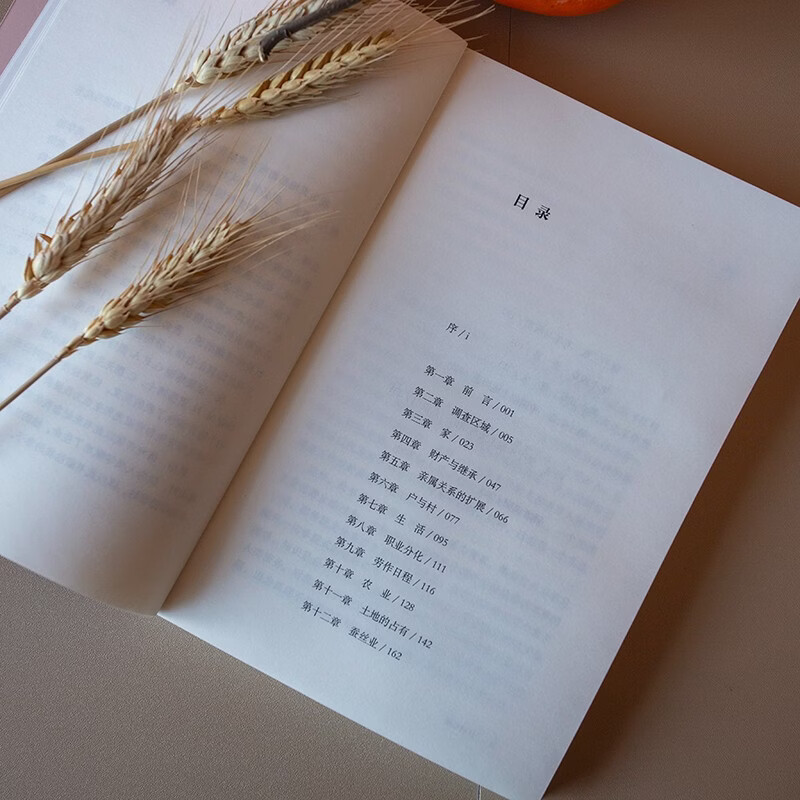 目录
序 / i
第一章 前言 / 001
第二章 调查区域 / 005
第三章 家 / 023
第四章 财产与继承 / 047
第五章 亲属关系的扩展 / 066
第六章 户与村 / 077
第七章 生活 / 095
第八章 职业分化 / 111
第九章 劳作日程 / 116
第十章 农业 / 128
第十一章 土地的占有 / 142
第十二章 蚕丝业 / 162